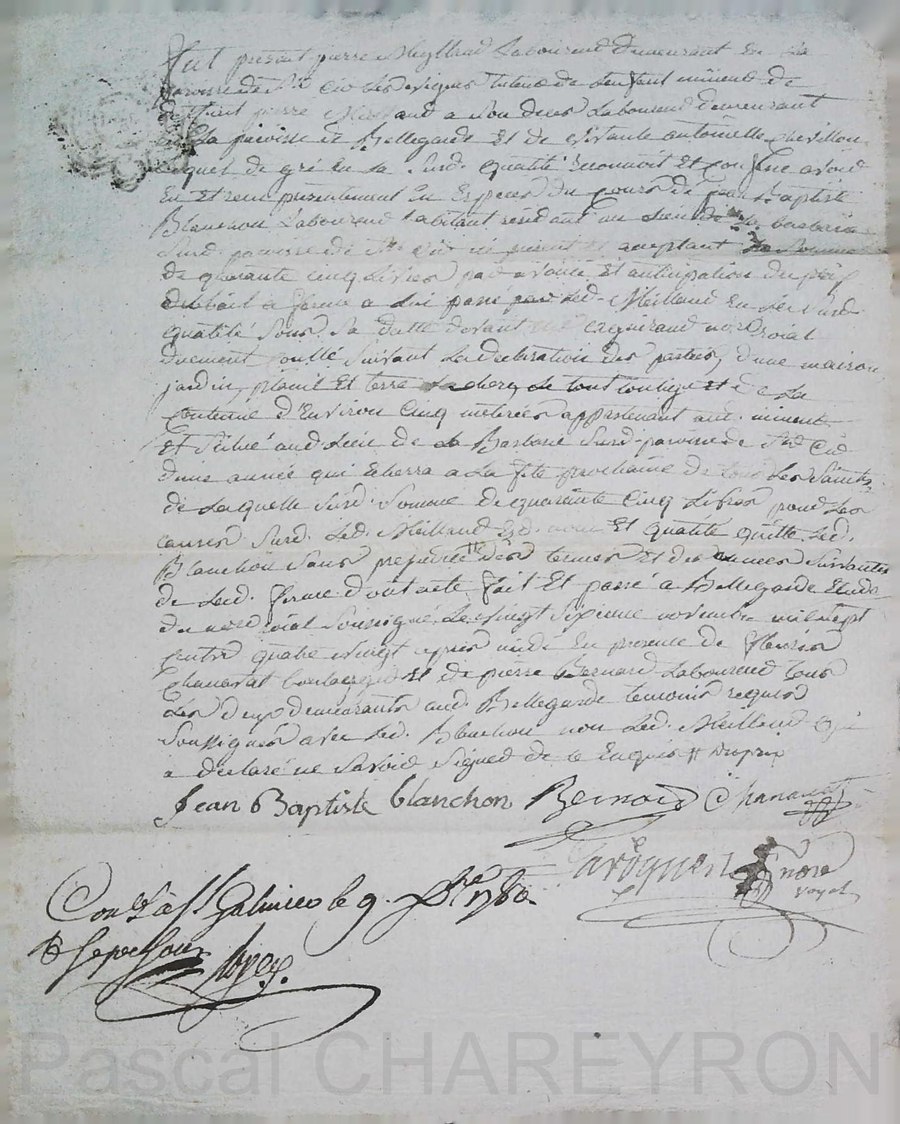 fut présent pierre Meylland Laboureur demeurant En la
paroisse de St Cir les vignes tuteur de Lenfant mineur de
deffunt pierre Meilland a Son deces Laboureur demeurant
En La paroisse de Bellegarde Et de vivante antoinette
lequel de gré En sa Surd. qualité Reconnoit Et Confesse avoir
Eu Et reçu présentement En Especes du Cours de Jean Baptiste
Blanchon Laboureur habitant au Lieu de la barbarie
Surd. paroisse de St Cir ici présent Et aceptant La Somme
de quarante Cinq Livres par avance Et anticipation du prix
du bail a ferme a Lui passé par Led. Meilland En Sesd.
qualité Sous Sa datte devant not. Roial
duement Conllé Suivant La déclaration des parties, d'une maison
jardin, et terre Le tout Contigu Et de La
Contenue d'Environ Cinq meterées appartenant aud. mineur
Et Situé aud. Lieu de La Barbarie Surd. paroisse de St Cir
d'une année qui Echerra a La fete prochaine de tous Les Saints
de Laquelle Surd. Somme de quarante Cinq Livres pour Les
causes Surd. Led. Meilland Esd. nom Et qualité quitte Led.
Blanchon Sans préjudice des termes Et des années Suivantes
de Lad. ferme dont acte fait Et passé a Bellegarde Etude
du not. roial Soussigné, Le vingt Sixieme novembre mil Sept
Cents quatre vingt apres midi En presence de fleurie
Chanavat Et de pierre Bernard Laboureur tous
Les deux demeurants aud. Bellegarde temoins requis
Soussignés avec Led. Blanchon non Led. Meilland qui
a declaré ne Savoir Signer de ce Enquis
Jean Baptiste blanchon Bernard Chanavat
nore
royal
Conllé à St. Galmier le 9. Xbre 1780.
R sept sous
Pascal CHAREYRON